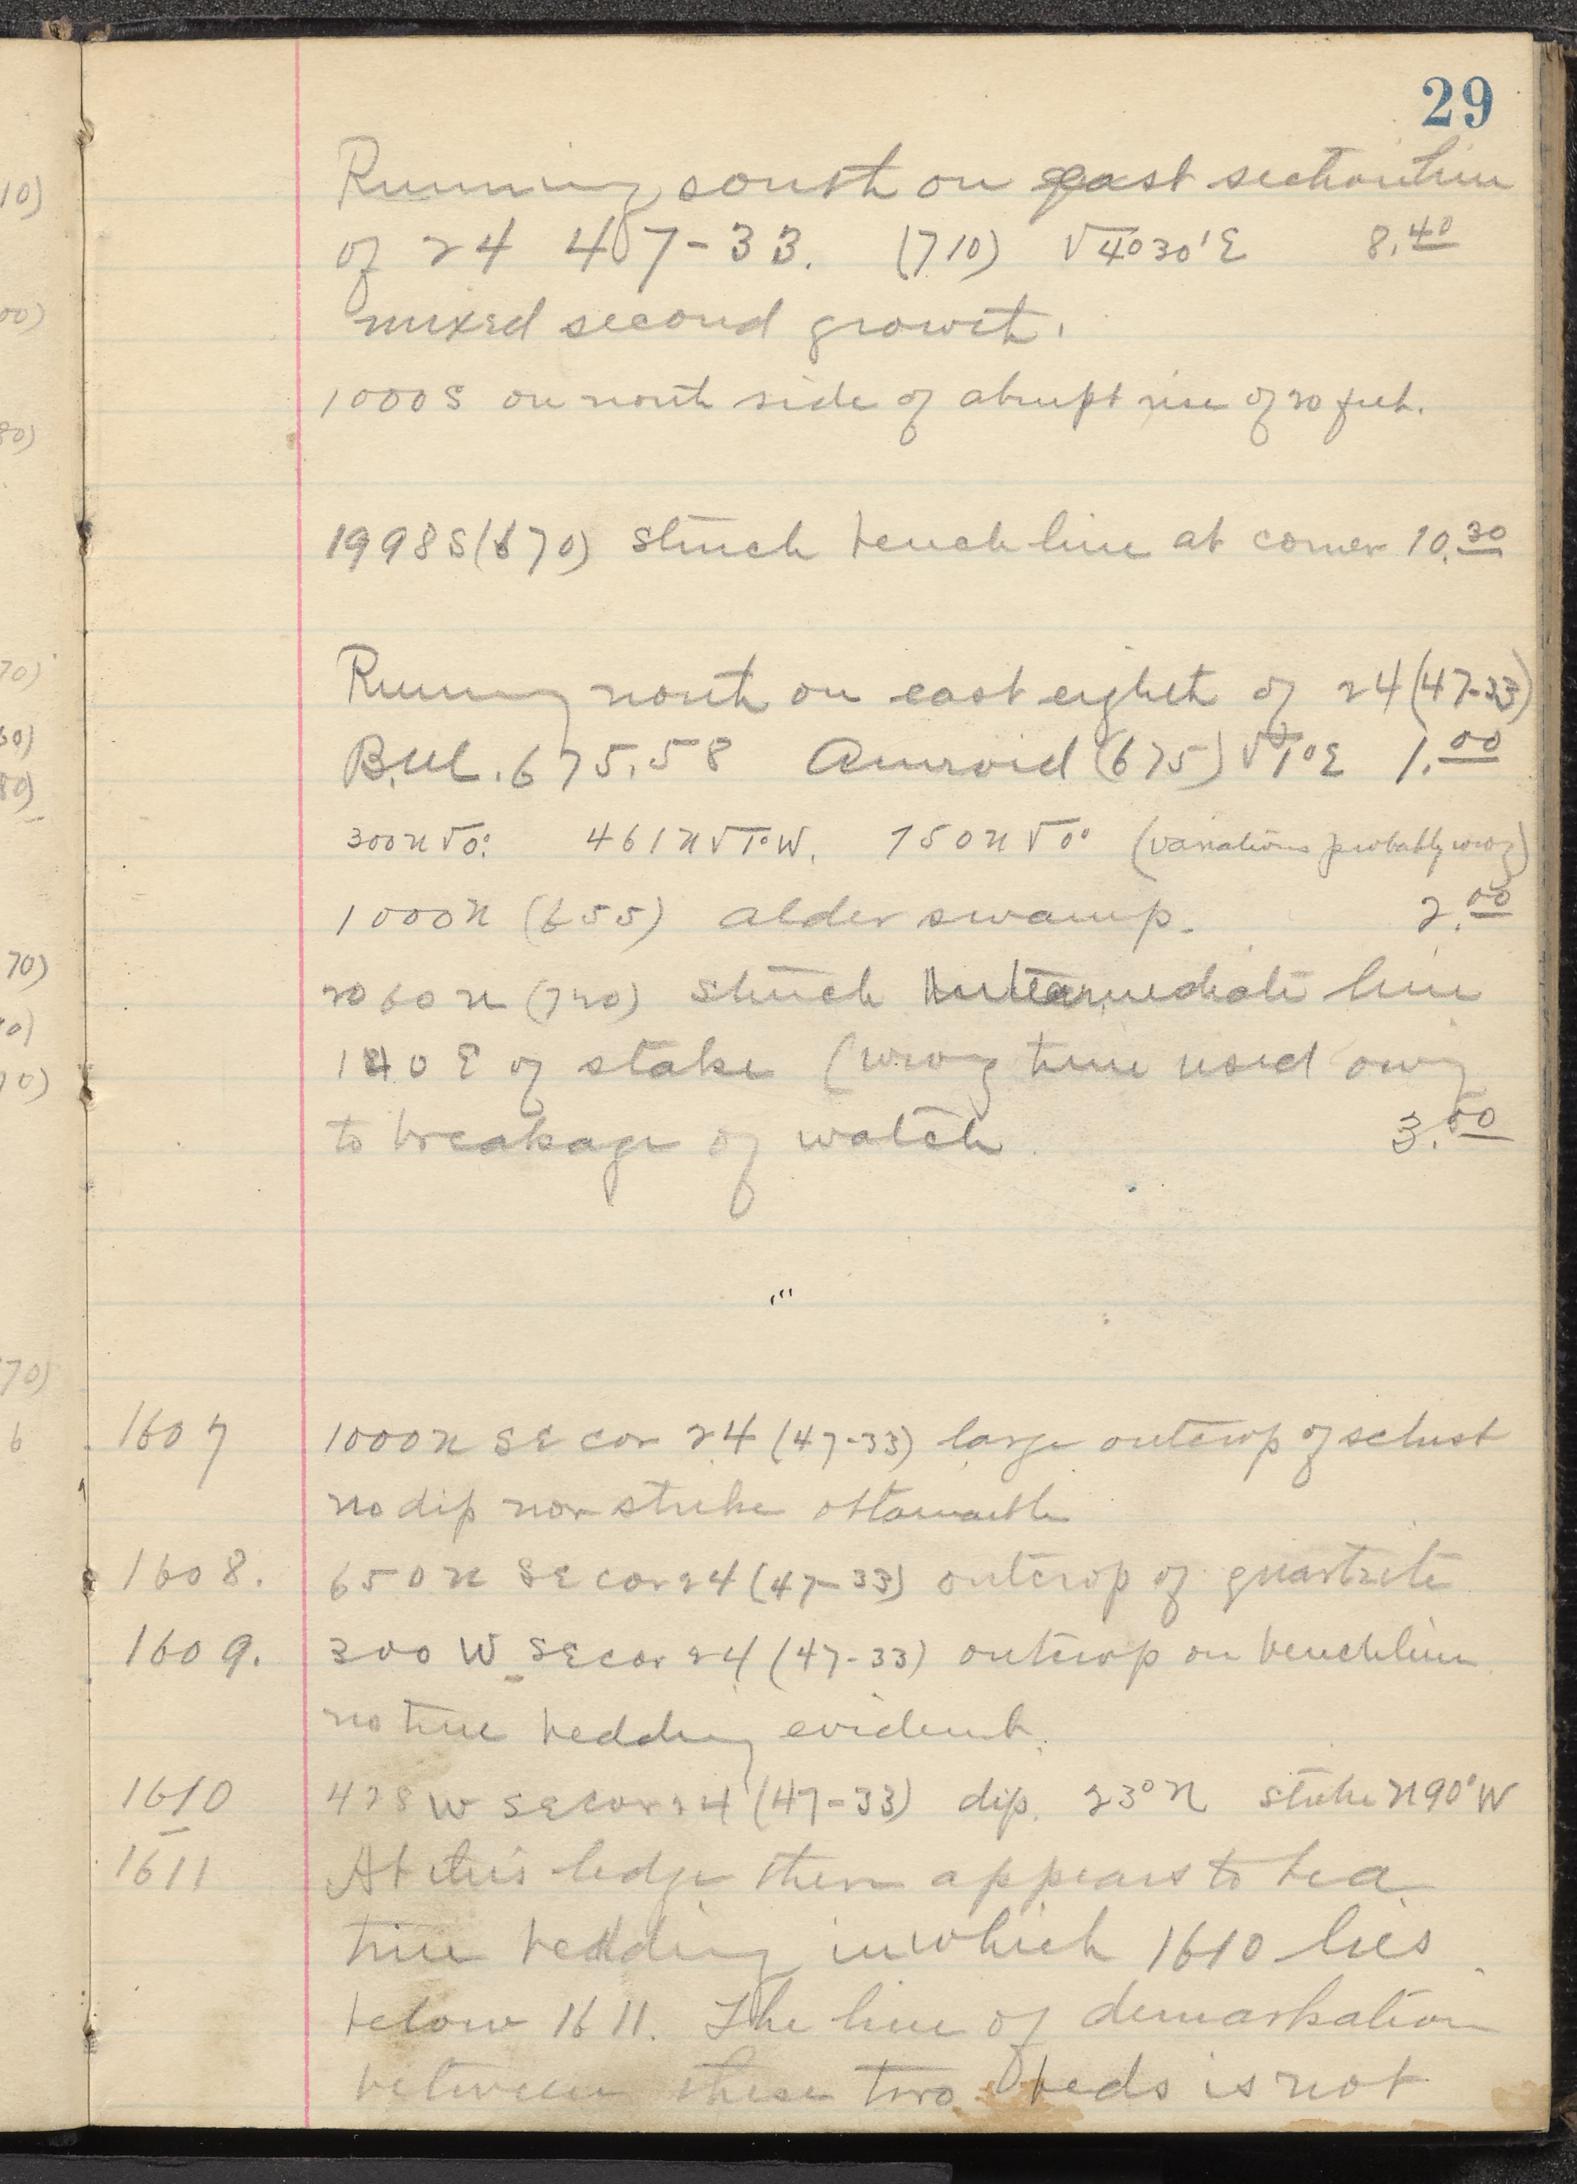 29
Running south on east section line
of 24 47-33. (710) √4°30'E 8.40
mixed second growth.
1000 S on north side of abrupt rise of 20 feet.
1998 S (670) struck bench line at corner 10.30
Running north on east eighth of 24 (47-33)
B.M. 675.58 Aneroid (675) √1°E 1.00
300 N √0°. 461 N √1°W. 750 N √0° (variations probably wrong)
1000 N (655) alder swamp. 2.00
2060 N (720) struck intermediate line
140 E of stake (wrong time used owing
to breakage of watch 3.00
1607 1000 N SE cor 24 (47-33) large outcrop of schist
no dip nor strike obtainable
1608. 650 N SE cor 24 (47-33) outcrop of quartzite
1609. 300 W SE cor 24 (47-33) outcrop on bench line
no true bedding evident.
1610 428 W SE cor 24 (47-33) dip. 23° N strike N90°W
1611 At this ledge there appears to be a
true bedding in which 1610 lies
below 1611. The line of demarkation
between these two beds is not
10)
00)
80)
70)
60)
80)
70)
0)
70)
70)
6